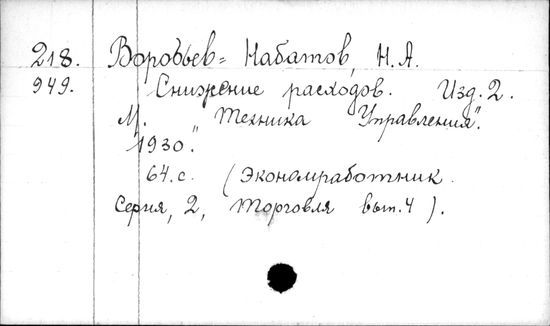 218. Воробьев-Набатов, Н.А.
949. Снижение расходов. Изд. 2.
М. "Техника Управления".
1930.
64.с. (Экономработник.
Серия, 2, Торговля вып. 4).